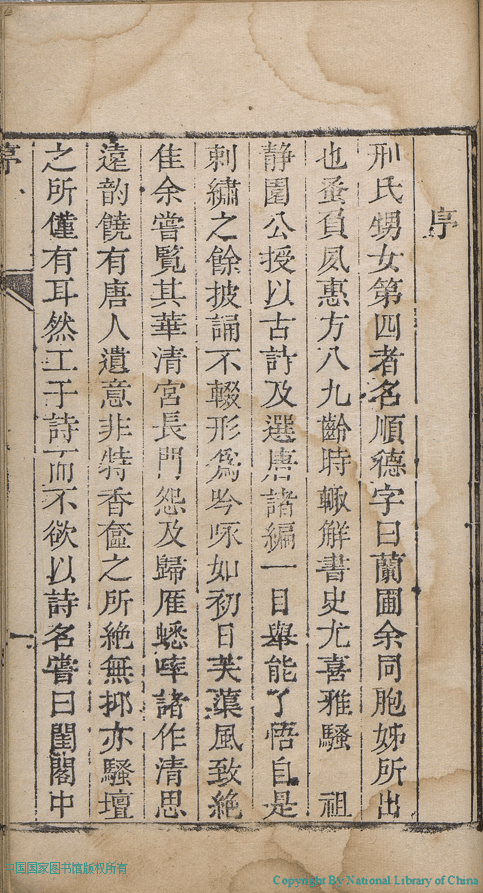 序
刑氏甥女第四者名順德字曰蘭圃余同胞姊所出
也蚤負夙惠方八九齡時輙解書史尤喜雅騷 祖
静園公授以古詩及選唐諸編一目舉能了悟自是
刺繡之餘披誦不輟形爲吟咏如初日芙蕖風致絶
佳余嘗覧其華清宮長門怨及歸雁蟋蟀諸作清思
遠韵饒有唐人遺意非特香奩之所絶無抑亦騷壇
之所僅有耳然工于詩而不欲以詩名嘗曰閨閣中
序
一
中国国家图书馆版权所有
Copyright By National Library of China